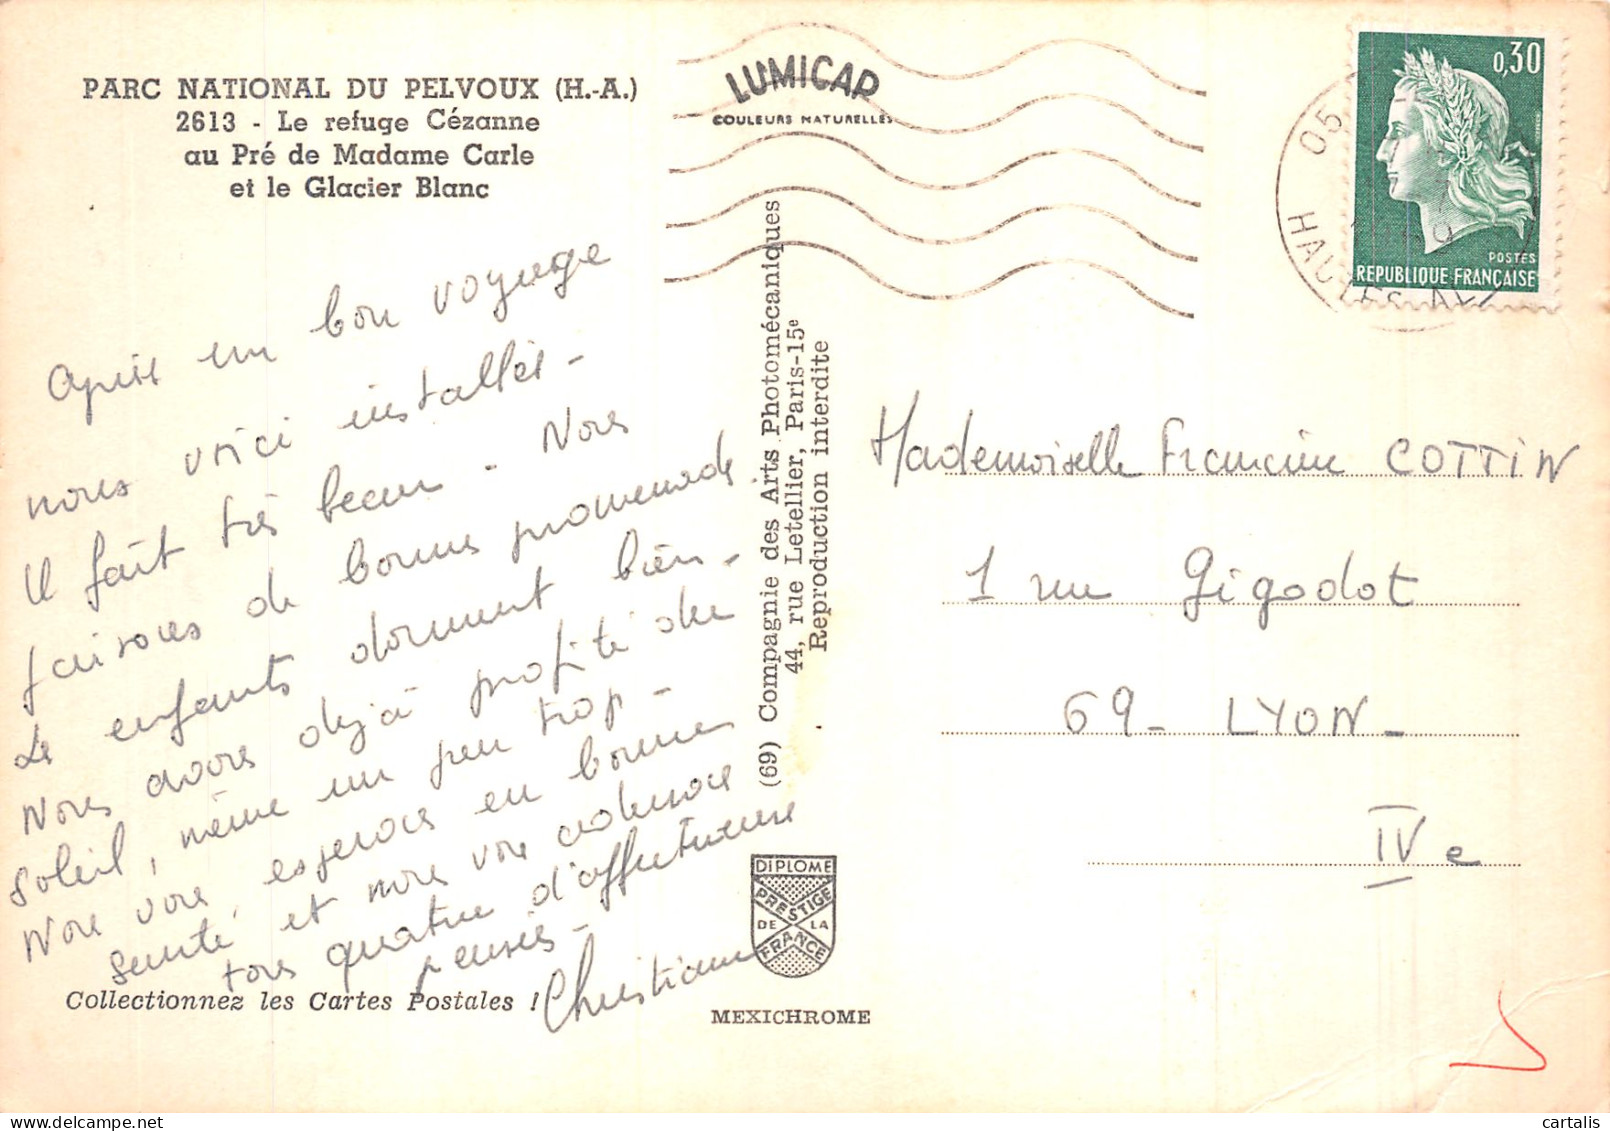 PARC NATIONAL DU PELVOUX (H.-A.)
2613 - Le refuge Cézanne
au Pré de Madame Carle
et le Glacier Blanc
LUMICAP
COULEURS NATURELLES
0,30
POSTES
REPUBLIQUE FRANÇAISE
05
HAUTES ALP
Après un bon voyage
nous voici installés -
Il fait très beau - Nous
faisons de bonnes promenades
Les enfants dorment bien -
Nous avons déjà profité du
soleil, même un peu trop -
Nous vous espérons en bonne
santé et nous vous adressons
tous quatre d'affectueuses
pensées - Christiane
Collectionnez les Cartes Postales !
(69) Compagnie des Arts Photomécaniques
44, rue Letellier, Paris-15e
Reproduction interdite
DIPLOME
PRESTIGE
DE LA
FRANCE
MEXICHROME
Mademoiselle Francine COTTIN
1 rue Gigodot
69 - LYON -
IVe
cartalis